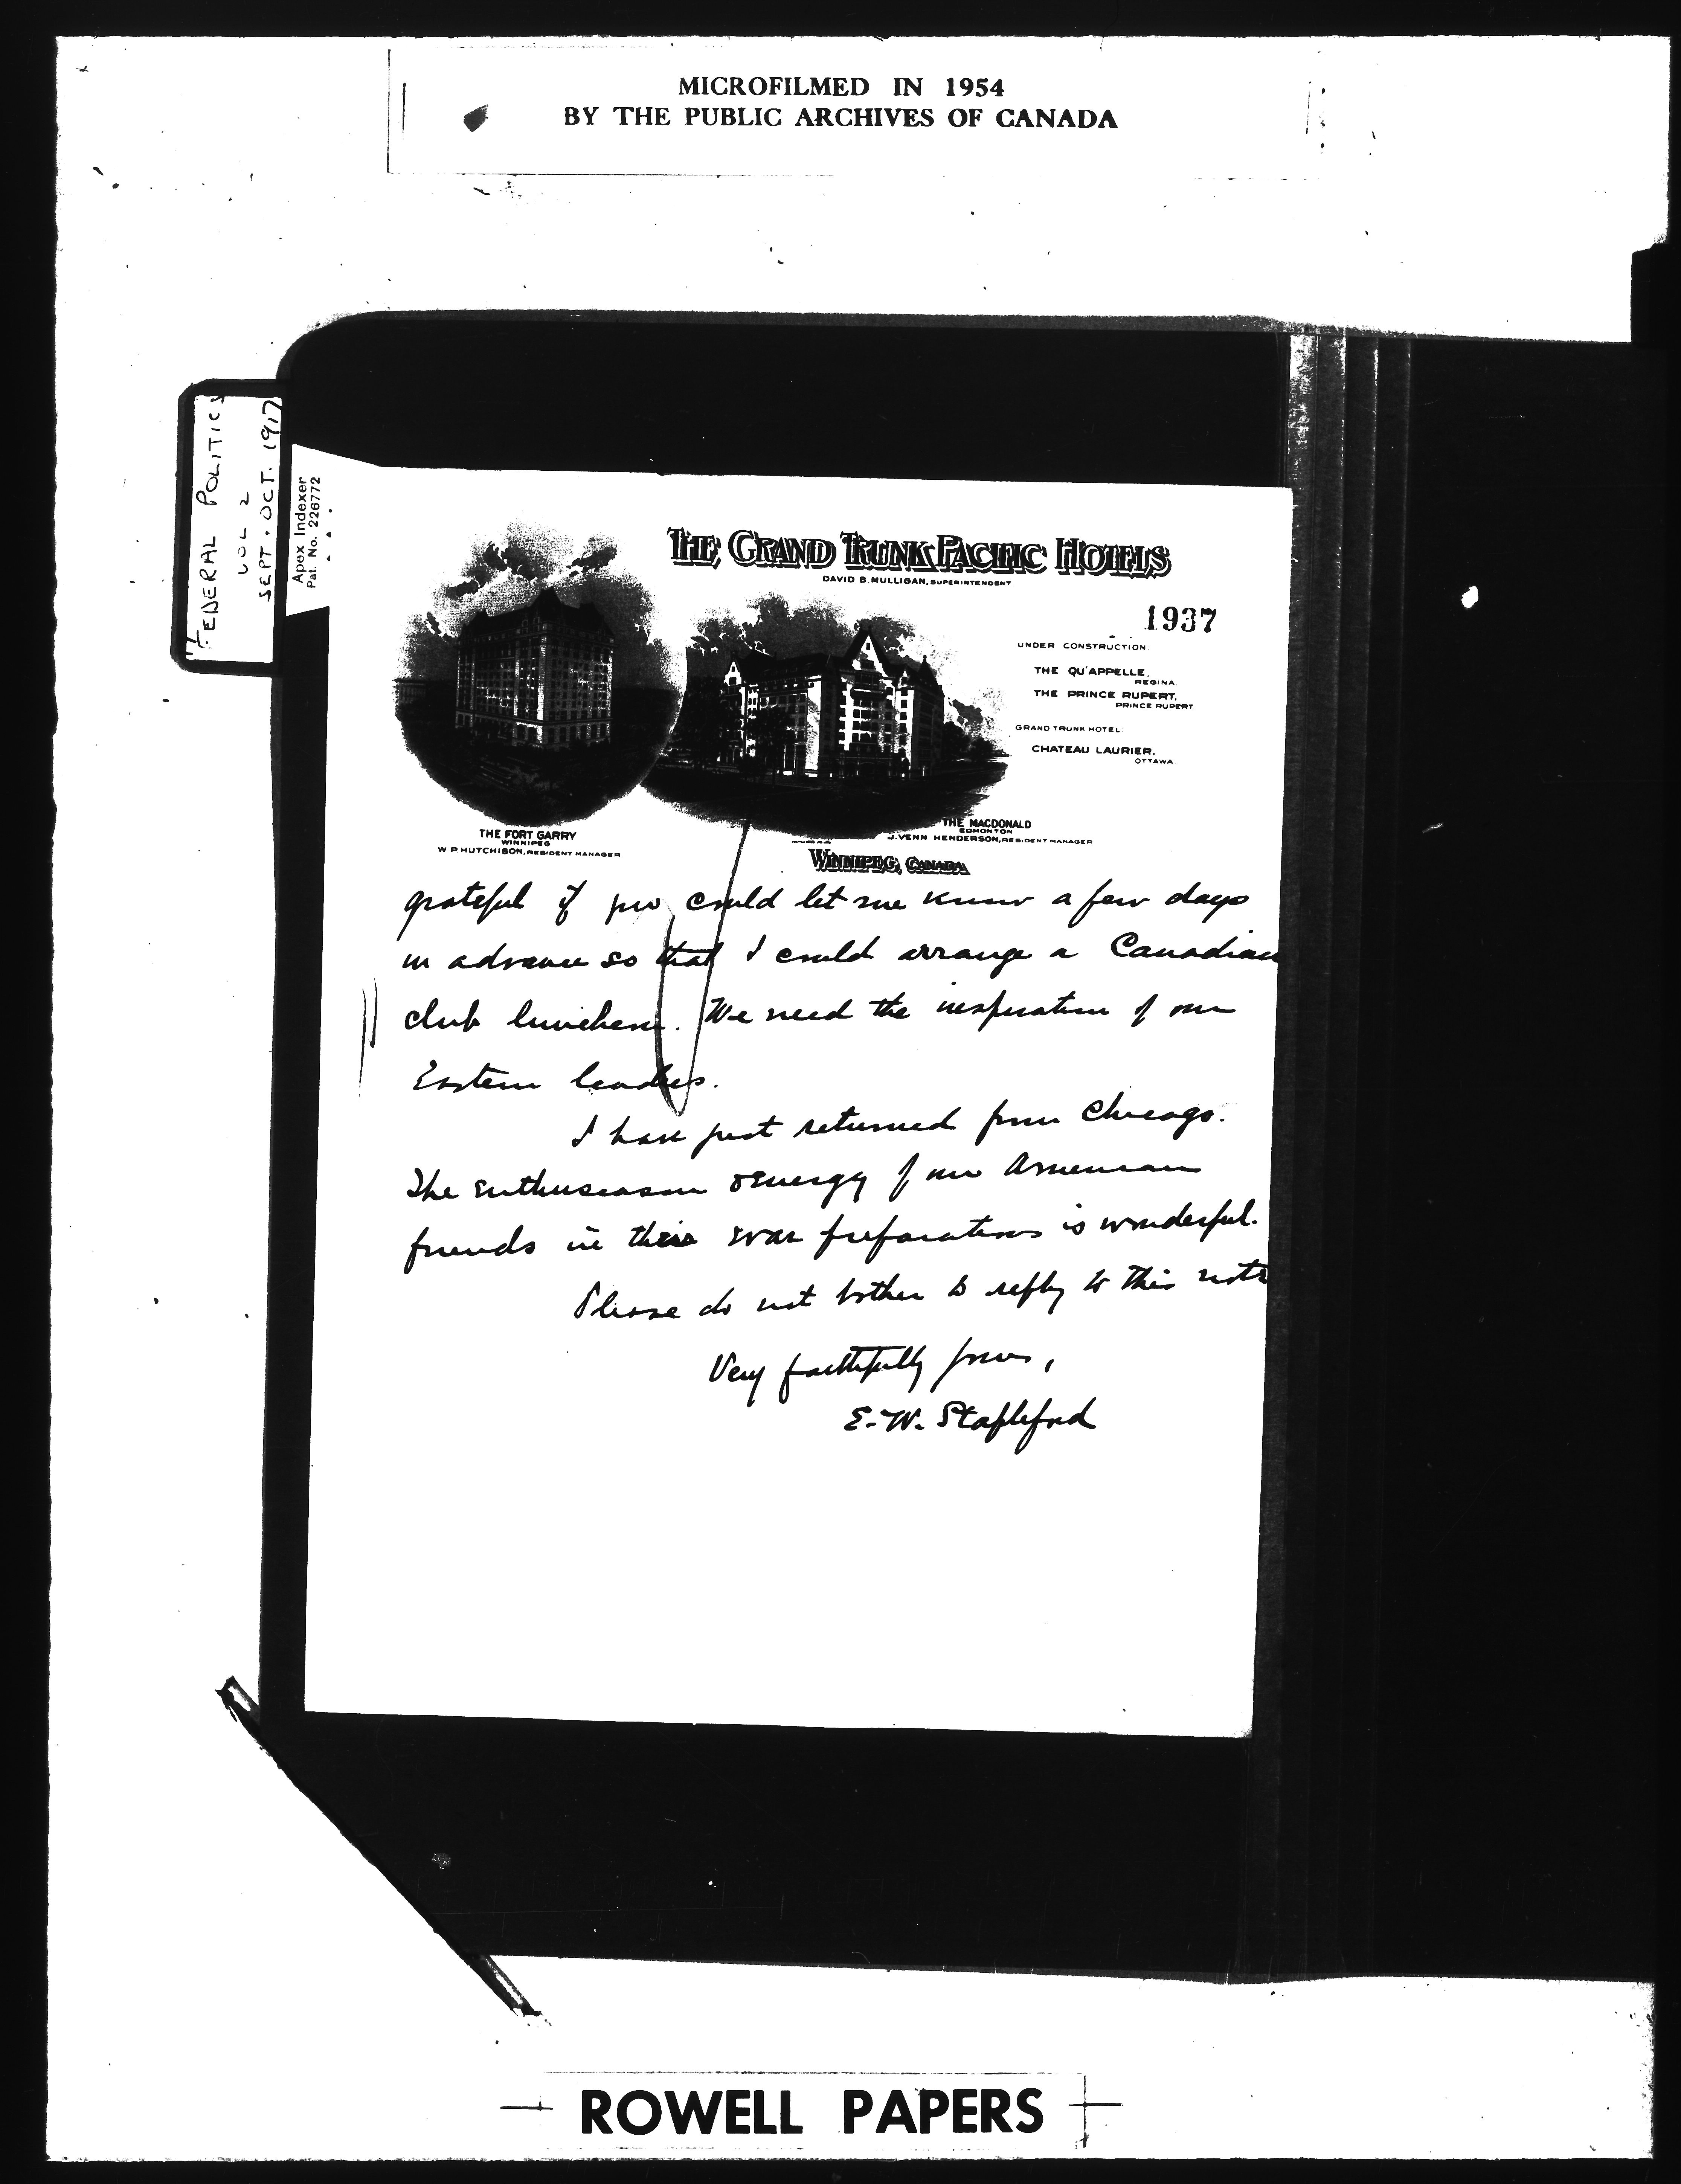 MICROFILMED IN 1954
BY THE PUBLIC ARCHIVES OF CANADA
FEDERAL POLITICS
VOL 2
SEPT. OCT. 1917
Apex Indexer
Pat. No. 226772
THE GRAND TRUNK PACIFIC HOTELS
DAVID B. MULLIGAN, SUPERINTENDENT
1937
UNDER CONSTRUCTION.
THE QU'APPELLE,
REGINA
THE PRINCE RUPERT,
PRINCE RUPERT
GRAND TRUNK HOTEL:
CHATEAU LAURIER,
OTTAWA
THE FORT GARRY
WINNIPEG
W. P. HUTCHISON, RESIDENT MANAGER
THE MACDONALD
EDMONTON
J. VENN HENDERSON, RESIDENT MANAGER
WINNIPEG, CANADA
grateful if you could let me know a few days
in advance so that I could arrange a Canadian
club luncheon. We need the inspiration of our
Eastern leaders.
I have just returned from Chicago.
The enthusiasm & energy of our American
friends in their war preparations is wonderful.
Please do not bother to reply to this note
Very faithfully yours,
E. W. Stapleford
ROWELL PAPERS